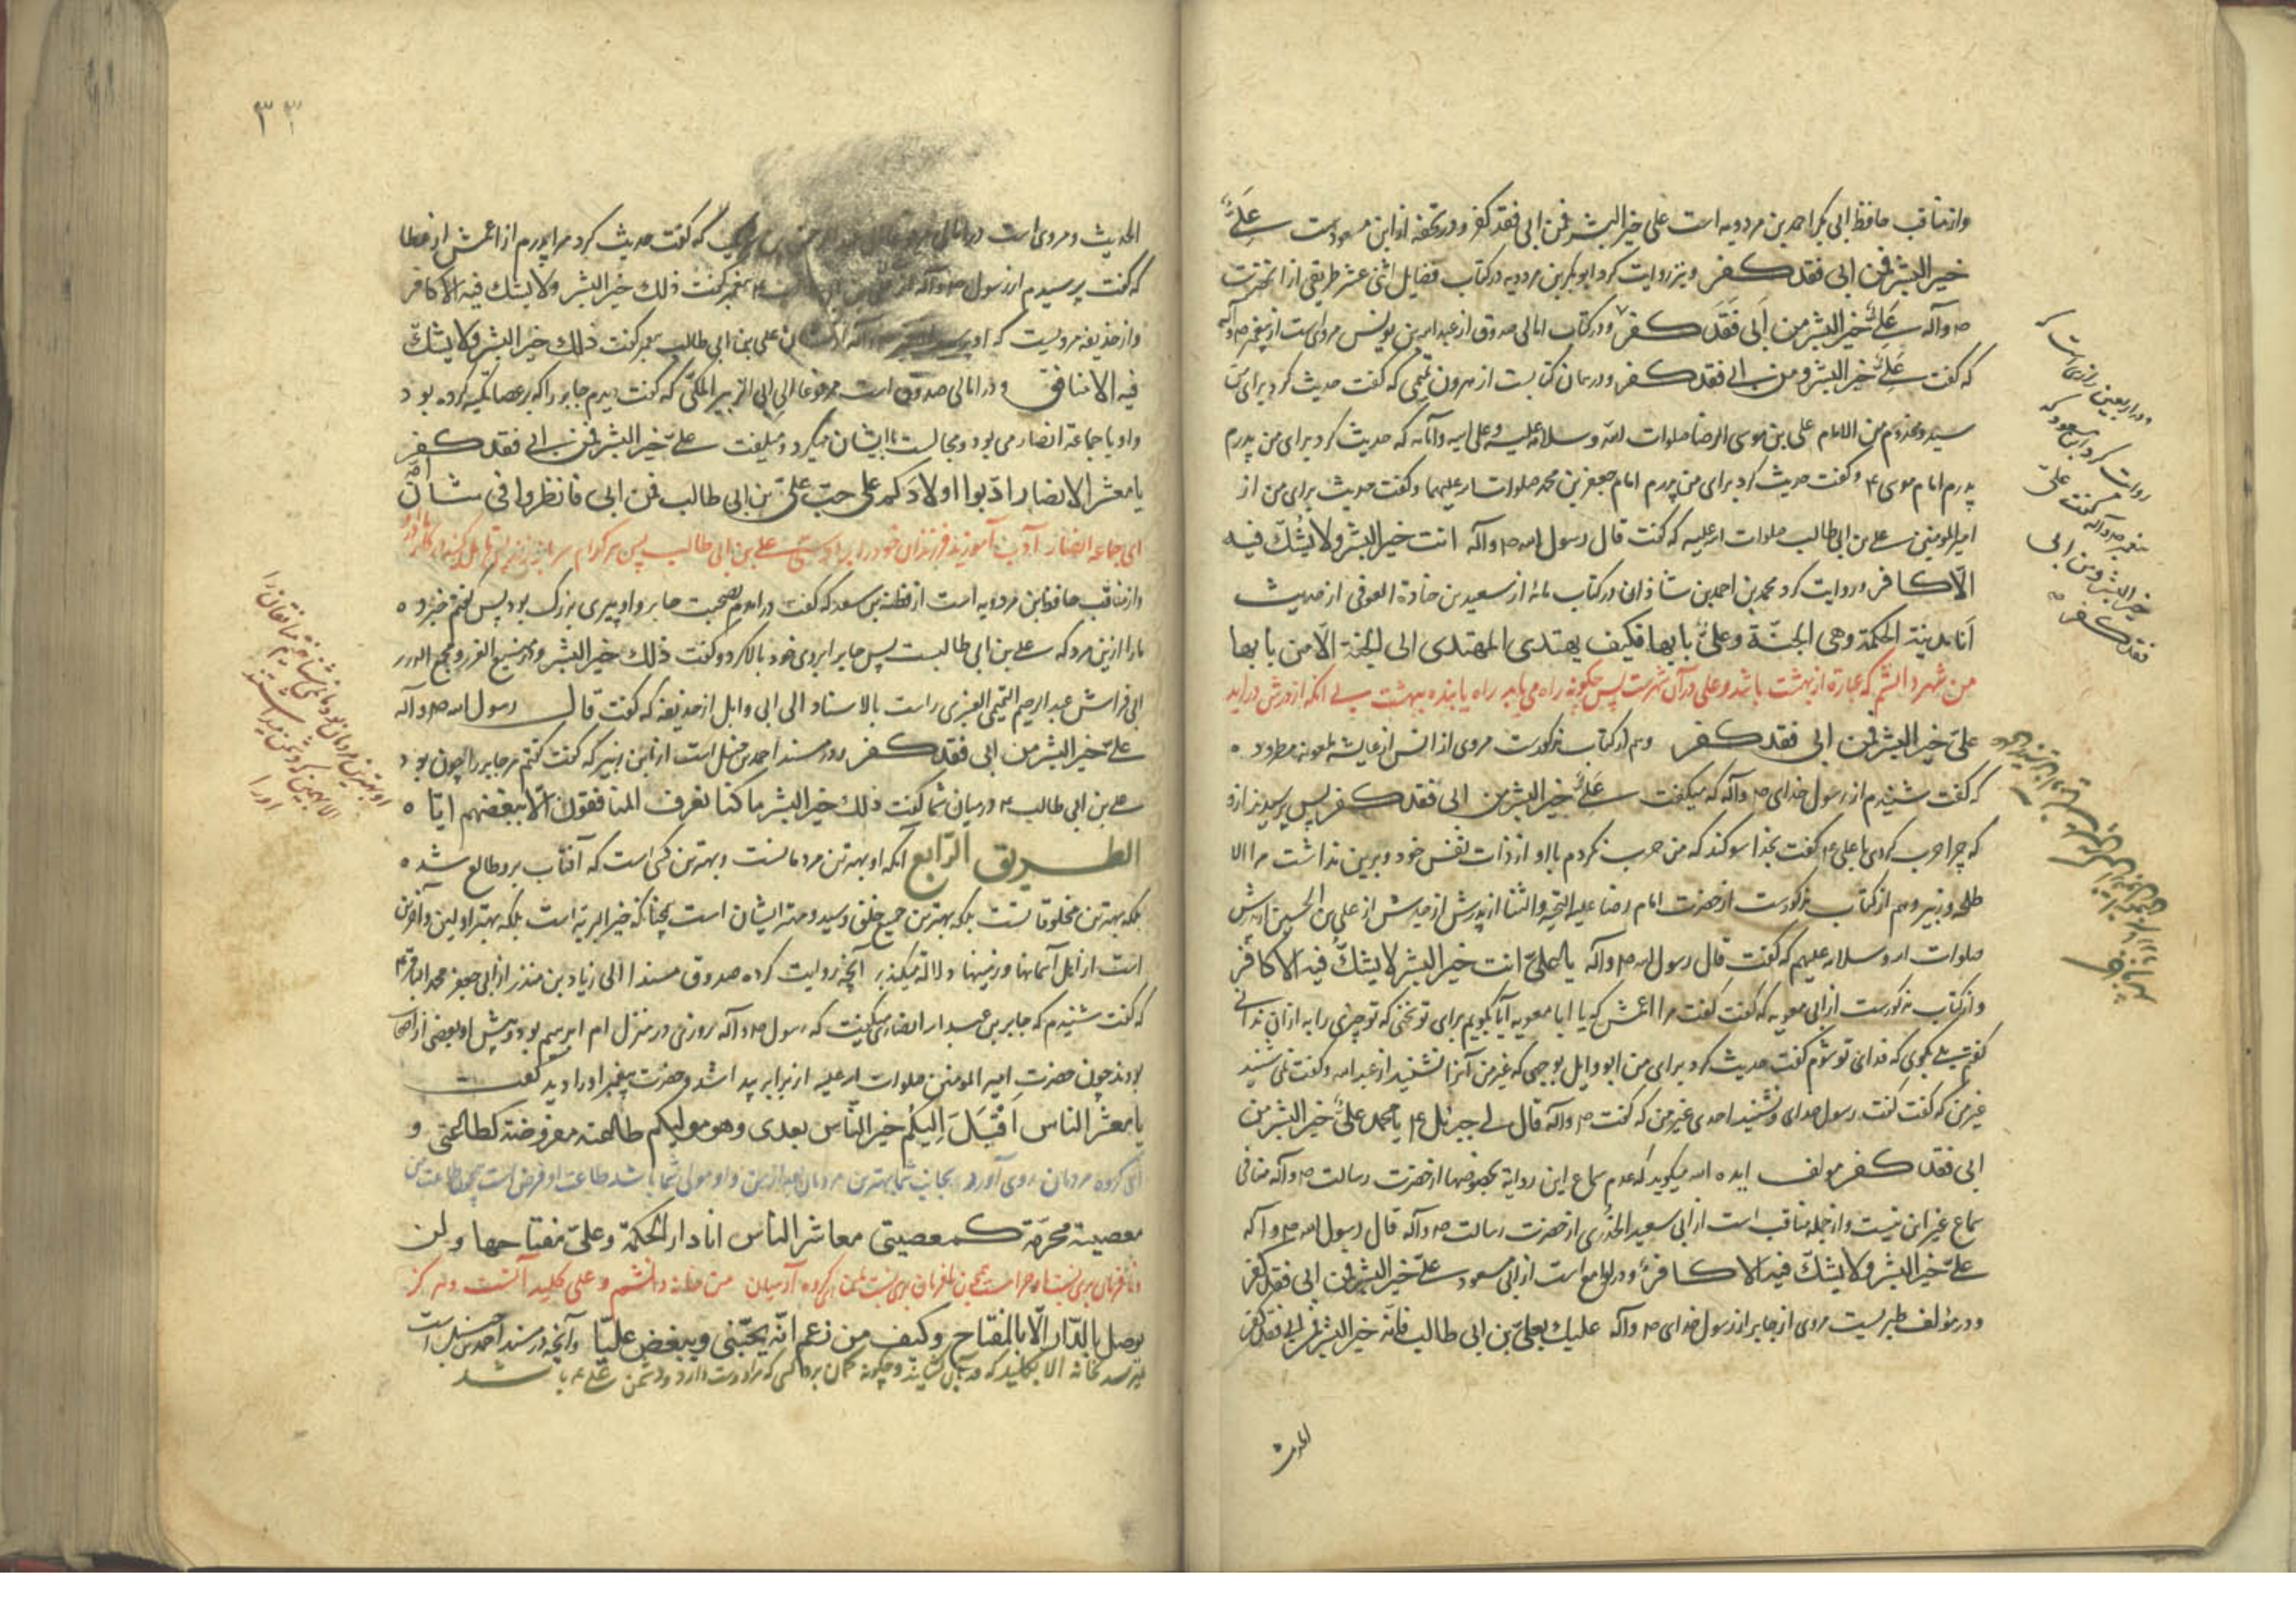 وازمناقب حافظ ابی بکر احمد بن مردویه است علی خیر البشر فمن ابی فقد کفر و در تحفه از ابن مسعودست علیّ
خیر البشر فمن ابی فقد کفر و نیز روایت کرد ابوبکر بن مردویه در کتاب فضایل اثنی عشر طریقی از انحضرت
ص وآله علیّ خیر البشر من ابی فقد کفر و در کتاب امالی صدوق از عبد الله بن یونس مرویست از پیغمبر ص وآله
که گفت علیّ خیر البشر و من ابی فقد کفر و در همان کتابست از هرون که گفت حدیث کرد برای من
سید و مخدوم من الامام علی بن موسی الرضا صلوات الله وسلامه علیه و علی ابیه وآبائه که حدیث کرد برای من پدرم
پدرم امام موسی ع و گفت حدیث کرد برای من پدرم امام جعفر بن محمد صلوات الله علیهما و گفت حدیث برای من از
امیر المومنین علی بن ابی طالب صلوات الله علیه که گفت قال رسول الله ص وآله انت خیر البشر ولا یشکّ فیه
الّا کافر و روایت کرد محمد بن احمد بن شاذان در کتاب مائه از سعید بن جنادة العوفی از حدیث
انا مدینة الحکمة وهی الجنّة وعلیّ بابها فکیف یهتدی المهتدی الی الجنة الّا من بابها
من شهر دانشم که عبارة از بهشت باشد و علی در آن شهرست پس چگونه راه می یابد راه یابنده ببهشت بی انکه از درش در اید
علیّ خیر البشر فمن ابی فقد کفر وهم در کتاب مذکورست مروی از انس از عایشه
که گفت شنیدم از رسول خدای ص وآله که میگفت علیّ خیر البشر من ابی فقد کفر پس پرسیدند ازو
که چرا حرب کردی با علی ع گفت بخدا سوگند که من حرب نکردم با او از ذات نفس خود و برین نداشت مرا الا
طلحه و زبیر وهم از کتاب مذکورست از حضرت امام رضا علیه التحیة والثنا از پدرش از جدش از علی بن الحسین از پدرش
صلوات الله وسلامه علیهم که گفت قال رسول الله ص وآله یا علیّ انت خیر البشر لا یشکّ فیه الا کافر
و از کتاب مذکورست از ابی معویه که گفت گفت مرا اعمش که یا ابا معویه آیا بگویم برای تو سخنی که تو چیزی را به از ان ندانی
گفتم بلی بگوی که فدای تو شوم گفت حدیث کرد برای من ابو وایل بوجهی که غیر من آنرا نشنید از عبد الله و گفت نمی شنید
غیر من که گفت گفت رسول خدای و نشنید احدی غیر من که گفت ص وآله قال لی جبرئیل ع یا محمد علیّ خیر البشر من
ابی فقد کفر مولف ایده الله میگوید که عدم سماع این روایة بخصوصها از حضرت رسالت ص وآله منافی
سماع غیر این نیست و از جمله مناقب است از ابی سعید الخدری از حضرت رسالت ص وآله قال رسول الله ص وآله
علیّ خیر البشر ولا یشکّ فیه الا کافر و در لوامع است از ابن مسعود علیّ خیر البشر فمن ابی فقد کفر
و در مؤلف طبریست مروی از جابر از رسول خدای ص وآله علیك بعلیّ بن ابی طالب فانّه خیر البشر فمن ابی فقد کفر
الحدیث
و در اربعین رازی است که
روایت کرد ابن مسعود که
پیغمبر ص وآله گفت علیّ
خیر البشر و من ابی
فقد کفر
٣٣
الحدیث و مروی است در امالی که گفت حدیث کرد مرا پدرم از اعمش از عطا
که گفت پرسیدم از رسول ص وآله پیغمبر گفت ذلك خیر البشر ولا یشك فیه الا کافر
و از حذیفه مرویست که او علی بن ابی طالب پیغمبر گفت ذلك خیر البشر ولا یشكّ
فیه الا منافق و در امالی صدوق است مرفوعا الی ابی الزبیر المکّی که گفت دیدم جابر را که بر عصا تکیه کرده بود
و او با جماعة انصار می بود و مجالست با ایشان میکرد و میگفت علیّ خیر البشر فمن ابی فقد کفر
یا معشر الانصار ادّبوا اولادکم علی حبّ علیّ بن ابی طالب فمن ابی فانظروا فی شان امّه
ای جماعه انصار آدب آموزید فرزندان خود را بر دوستی علی بن ابی طالب پس هر کدام سر باز زند
و از مناقب حافظ بن مردویه است از عطیة بن سعد که گفت در امدم بصحبت جابر و او پیری بزرگ بود پس گفتم خبر ده
ما را ازین مرد که علی بن ابی طالبست پس جابر ابروی خود بالا کرد و گفت ذلك خیر البشر و از منبع الغرر و مجمع الدرر
ابی فراس عبد الرحیم التمیمی العنبری راست بالاسناد الی ابی وایل از حذیفه که گفت قال رسول الله ص وآله
علیّ خیر البشر من ابی فقد کفر و در مسند احمد بن حنبل است از ابن زبیر که گفت گفتم مر جابر را چون بود
علی بن ابی طالب ع در میان شما گفت ذلك خیر البشر ما کنا نعرف المنافقون الّا ببغضهم ایّا ه
الطریق الرّابع آنکه او بهترین مردمانست و بهترین کسی است که آفتاب برو طالع شده
بلکه بهترین مخلوقاتست بلکه بهترین جمیع خلق و سید و مهتر ایشان است چنانکه خیر البریه است بلکه بهتر اولین و آخرین
است از اهل آسمانها و زمینها و دلالة میکند بر آنچه روایت کرده صدوق مسندا الی زیاد بن منذر از ابی جعفر محمد الباقر ع
که گفت شنیدم که جابر بن عبد الله انصاری میگفت که رسول ص وآله روزی در منزل ام ابرهیم بود و پیش او بعضی از اصحاب
بودند چون حضرت امیر المومنین صلوات الله علیه از برابر پیدا شد و حضرت پیغمبر او را دید گفت
یا معشر الناس اقبل الیکم خیر النّاس بعدی وهو مولیکم طاعته مفروضة کطاعتی و
ای گروه مردمان روی آورد بجانب شما بهترین مردمان بعد از من و او مولای شما باشد طاعت او فرض است همچون طاعت من
معصیته محرّمة کمعصیتی معاشر الناس انا دار الحکمة وعلیّ مفتاحها ولن
گروه آدمیان من خانه دانشم و علی کلید آنست و هرگز
یوصل بالدّار الّا بالمفتاح وکیف من زعم انّه یحبّنی ویبغض علیّا و آنچه در مسند احمد بن حنبل است
نرسد بخانه الا بکلید که در بآن گشایند و چگونه گمان برد کسی که مرا دوست دارد و دشمن علی ع باشد
او بهترین مردمان بود ما نمی شناختیم منافقان را
الا بهمین که دشمن میداشتند
او را